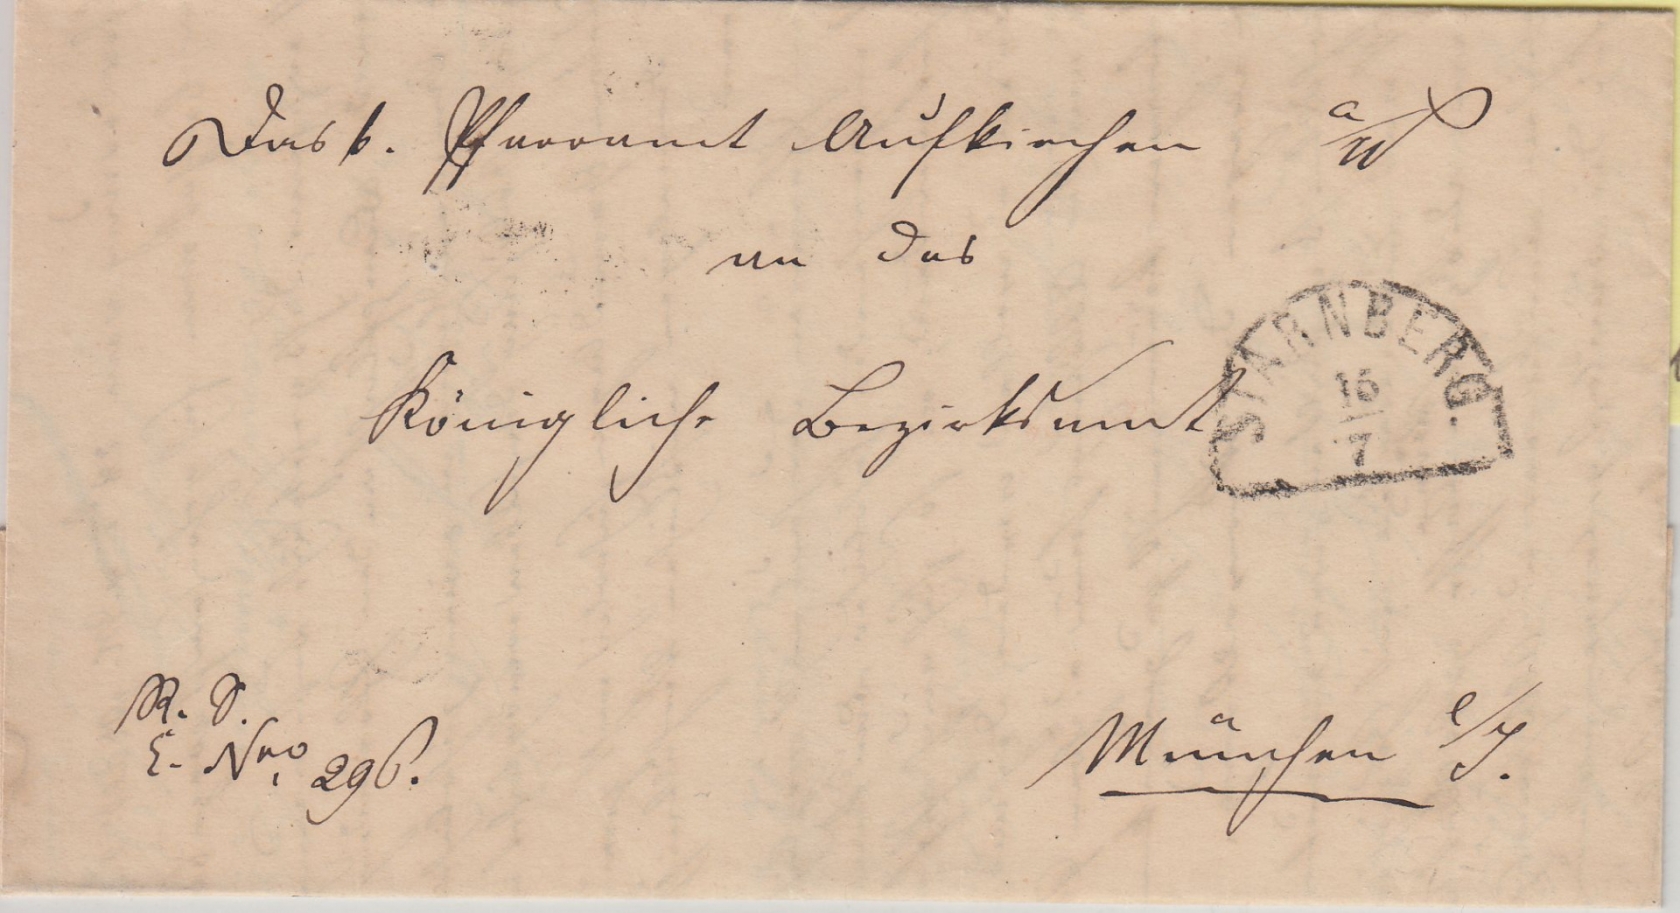 Das k. Pfarramt Aufkirchen a/W
an das
Königliche Bezirksamt
STARNBERG.
16
7
R. S.
E. Nro 296.
München l/I.